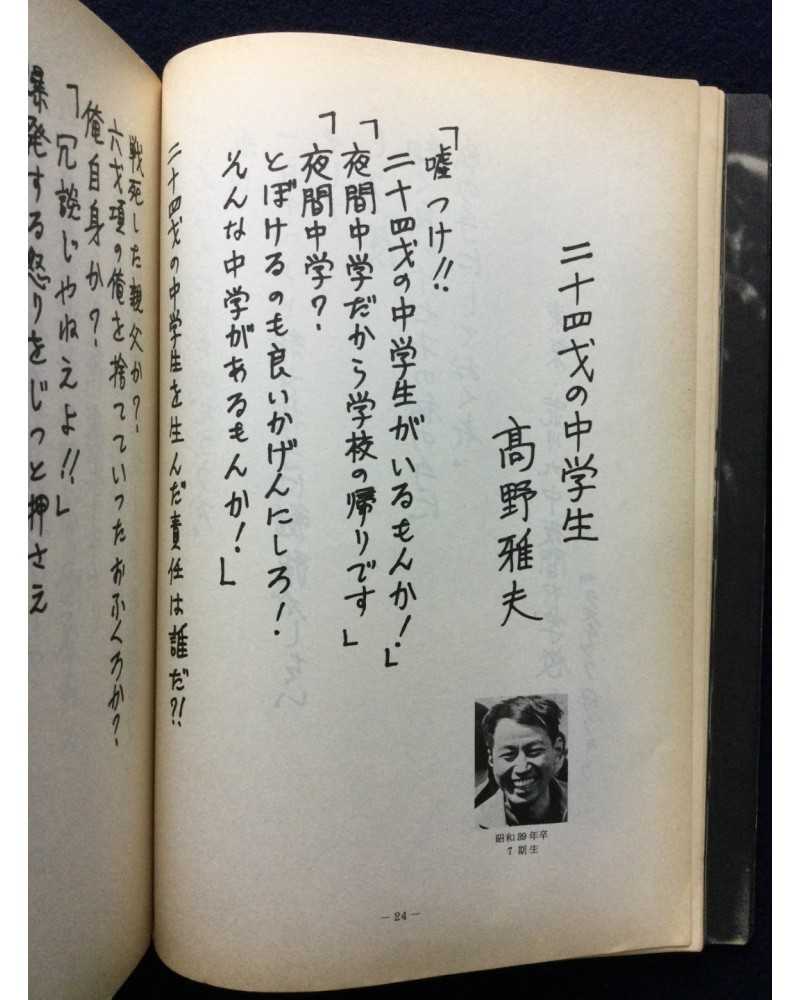 二十四才の中学生
髙野雅夫
「嘘つけ!!
二十四才の中学生がいるもんか!」
「夜間中学だから学校の帰りです」
「夜間中学?
とぼけるのも良いかげんにしろ!
そんな中学があるもんか!」
二十四才の中学生を生んだ責任は誰だ?!
戦死した親父か?
六才項の俺を捨てていったおふくろか?
俺自身か?
「冗談じゃねえよ!!」
爆発する怒りをじっと押さえ
昭和39年卒
7期生
－24－